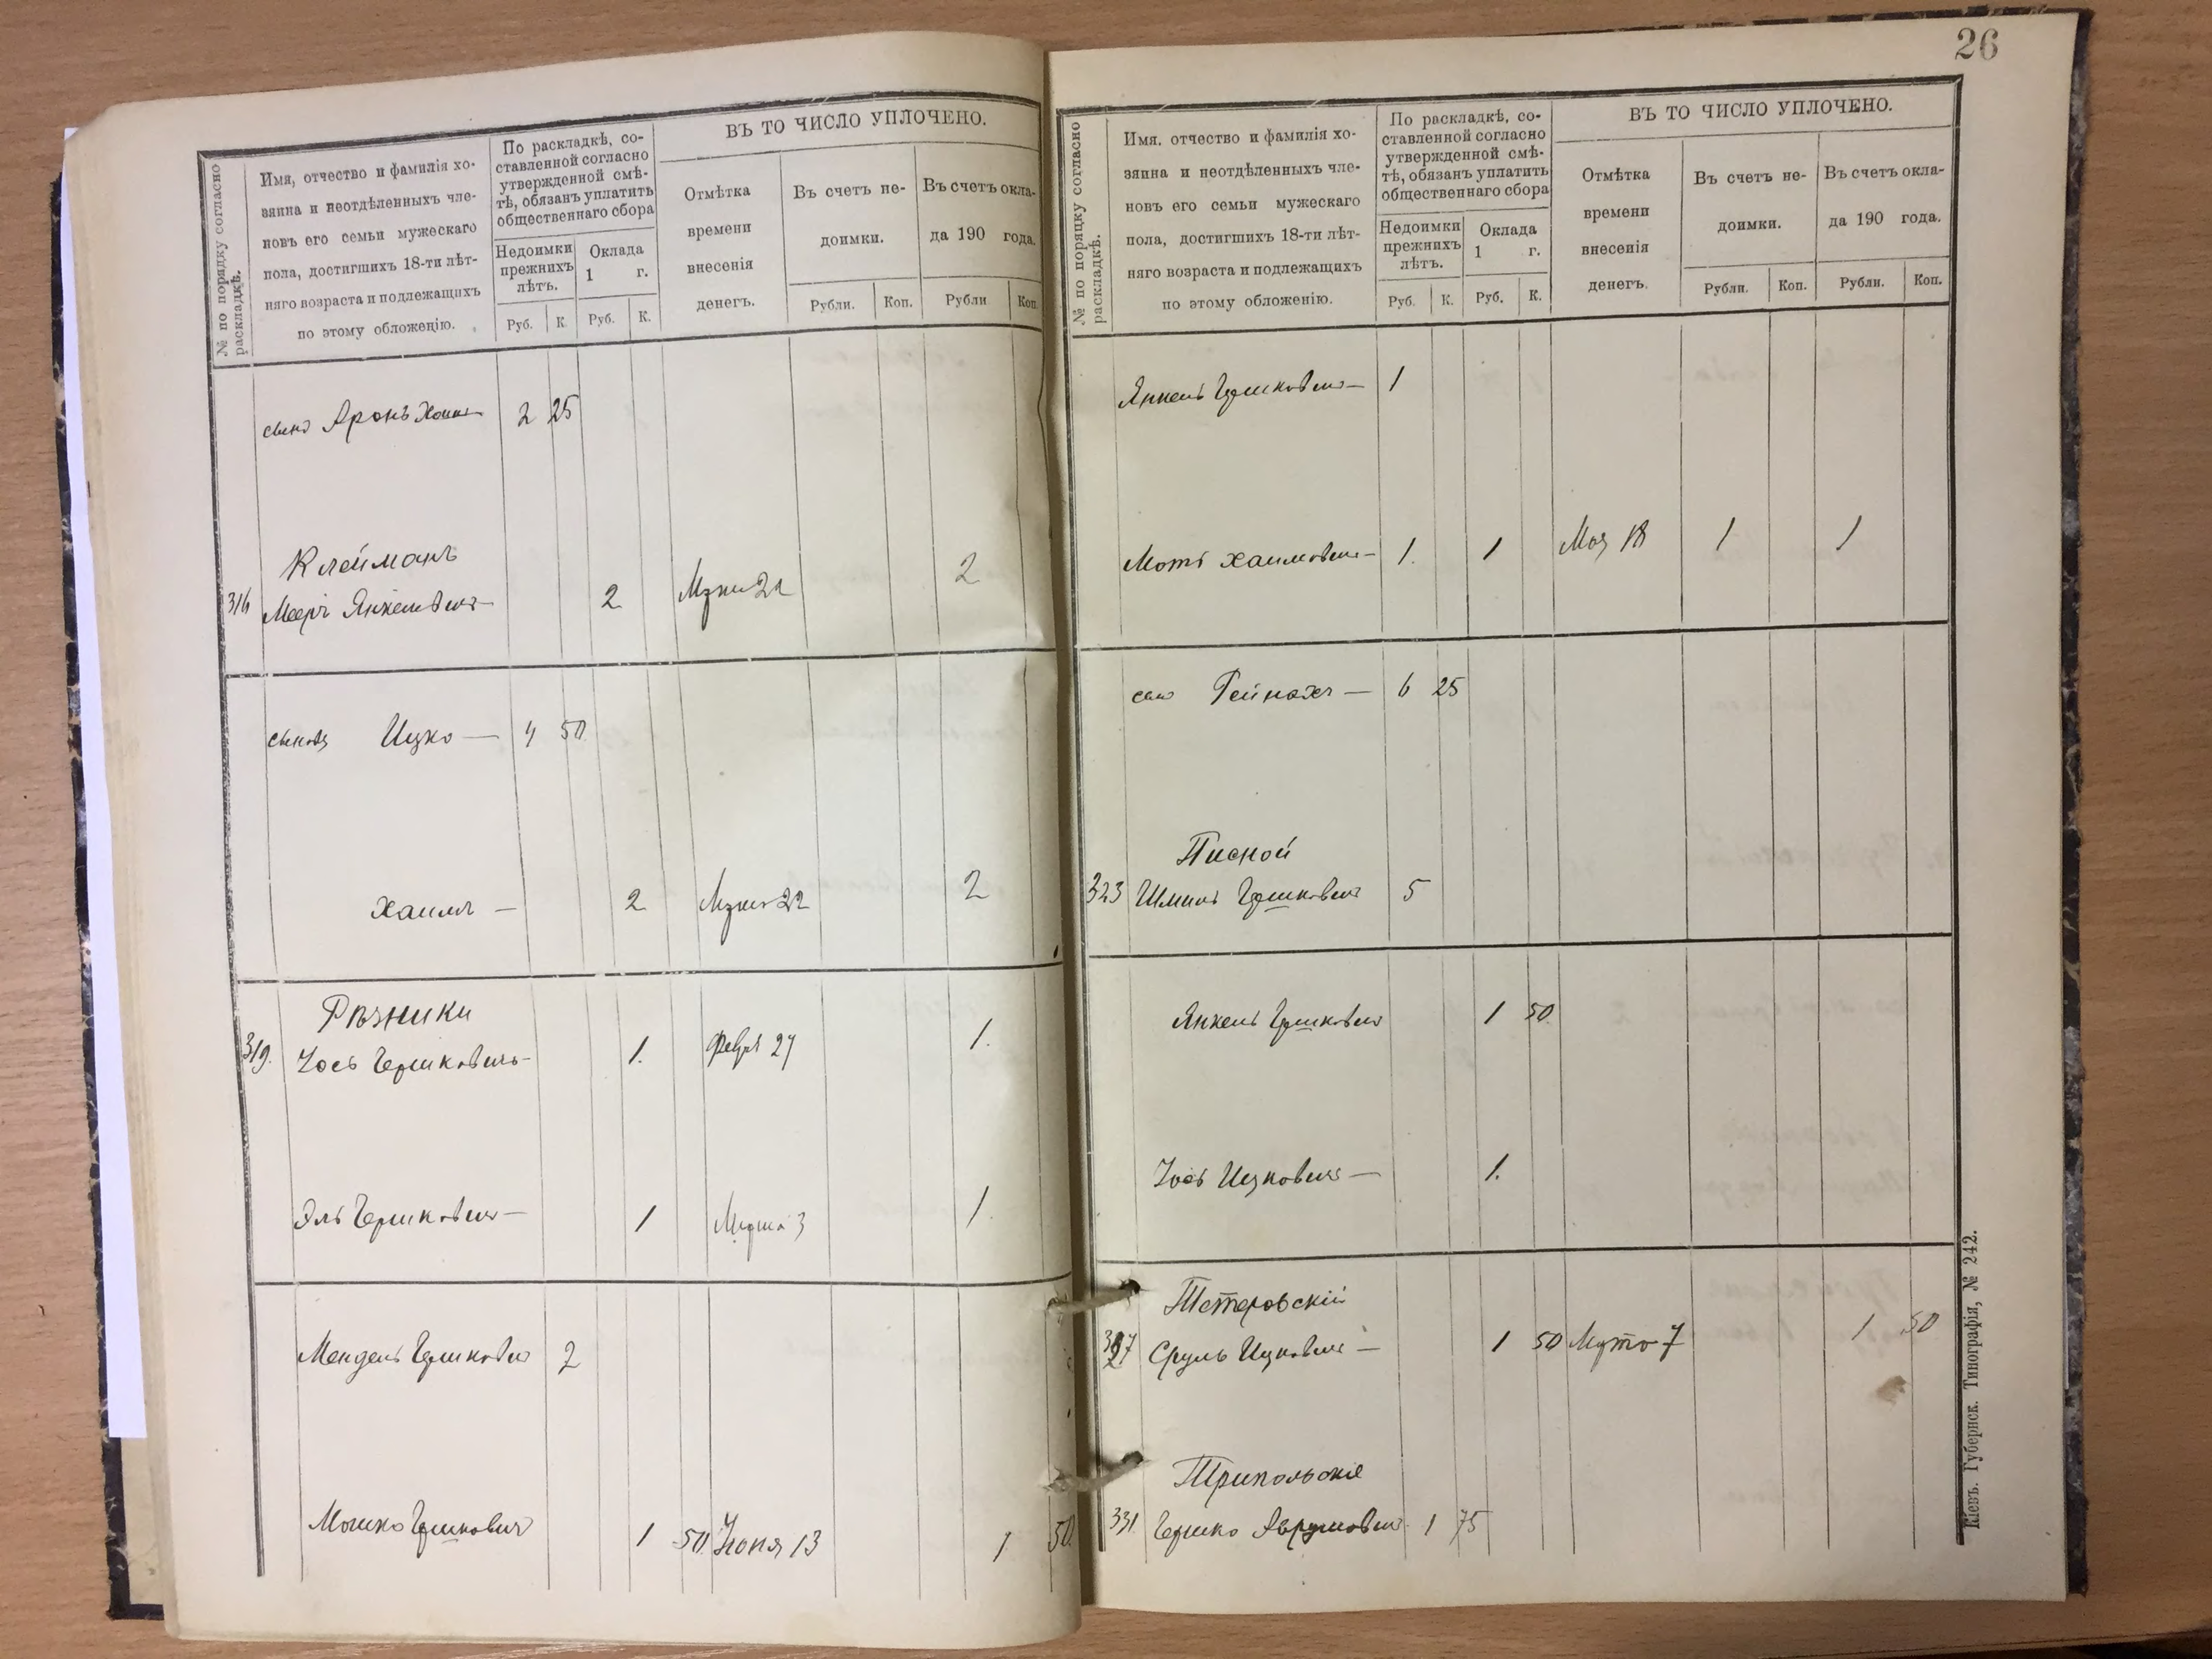 № по порядку согласно раскладкѣ.
Имя, отчество и фамилія хо-
зяина и неотдѣленныхъ чле-
новъ его семьи мужескаго
пола, достигшихъ 18-ти лѣт-
няго возраста и подлежащихъ
по этому обложенію.
По раскладкѣ, со-
ставленной согласно
утвержденной смѣ-
тѣ, обязанъ уплатить
общественнаго сбора
Недоимки
прежнихъ
лѣтъ.
Оклада
1 г.
Руб. К. Руб. К.
ВЪ ТО ЧИСЛО УПЛОЧЕНО.
Отмѣтка
времени
внесенія
денегъ.
Въ счетъ не-
доимки.
Въ счетъ окла-
да 190 года.
Рубли. Коп. Рубли Коп.
сынъ Аронъ 2 25
Клейманъ
316 Мееръ Янкелевичъ 2 22 2
сыновя Ицко — 4 50
Хаимъ — 2 22 2
Рѣзники
319. Іось Гершковичъ 1. Февр 27 1.
Эль Гершковичъ — 1 Марта 3 1.
Мендель Гершкович 2
Мошко Гершкович 1 50 Іюня 13 1 50
26
№ по порядку согласно раскладкѣ.
Имя. отчество и фамилія хо-
зяина и неотдѣленныхъ чле-
новъ его семьи мужескаго
пола, достигшихъ 18-ти лѣт-
няго возраста и подлежащихъ
по этому обложенію.
По раскладкѣ, со-
ставленной согласно
утвержденной смѣ-
тѣ, обязанъ уплатить
общественнаго сбора
Недоимки
прежнихъ
лѣтъ.
Оклада
1 г.
Руб. К. Руб. К.
ВЪ ТО ЧИСЛО УПЛОЧЕНО.
Отмѣтка
времени
внесенія
денегъ.
Въ счетъ не-
доимки.
Въ счетъ окла-
да 190 года.
Рубли. Коп. Рубли. Коп.
Янкель Гершкович — 1
Моть Хаимович — 1. 1 Мая 18 1 1
— 6 25
Писной
323 Шмиль Гершкович 5
Янкель Гершкович 1 50
Іось Ицкович — 1.
Тетеровскій
327 Сруль Ицкович — 1 50 Марта 7 1 50
Трипольскіе
331 Гершко Аврумович 1 75
Кіевъ. Губернск. Типографія, № 242.